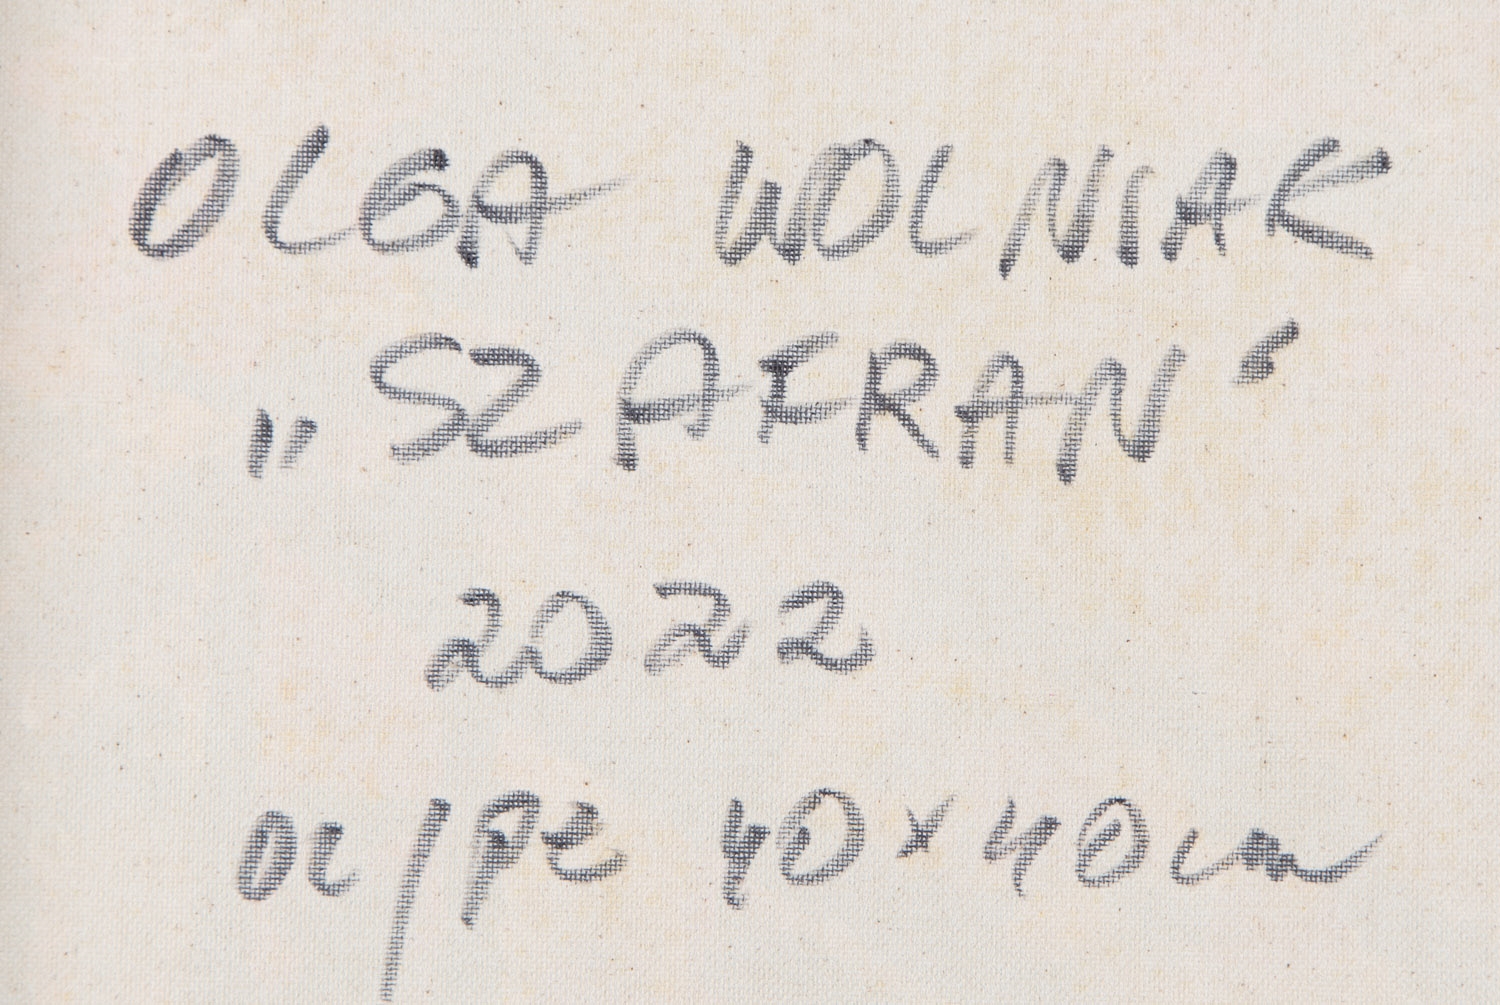 OLGA WOLNIAK
„SZAFRAN‘
2022
ol/pł 40x40cm